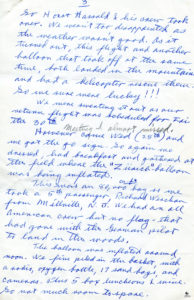 3
So Harst Harold & his crew took
over. We wasn't too disappointed as
the weather wasn't good. As it
turned out, this flight and another
balloon that took off at the same
time, both landed in the mountains
and had a helicopter rescue them.
So we were lucky!!!
We were sweating it out as our
return flight was scheduled for Fri
the 30th.
However came Wed (28th) and
we got the go sign. So again we
dressed, had breakfast and gathered at
the field where the balloon
was being inflated.
This being an 88,000 bag is we
took a 5th passenger, Richard
from Millville, N.J. We had an all
American crew but no flag - that
had gone with the German pilot
to land in the woods.
The balloon was inflated around
noon. We five piled in the basket, with
a radio, oxygen bottle, 17 sand bags, and
cameras. Plus 5 box lunches & wine.
So not much room to spare.